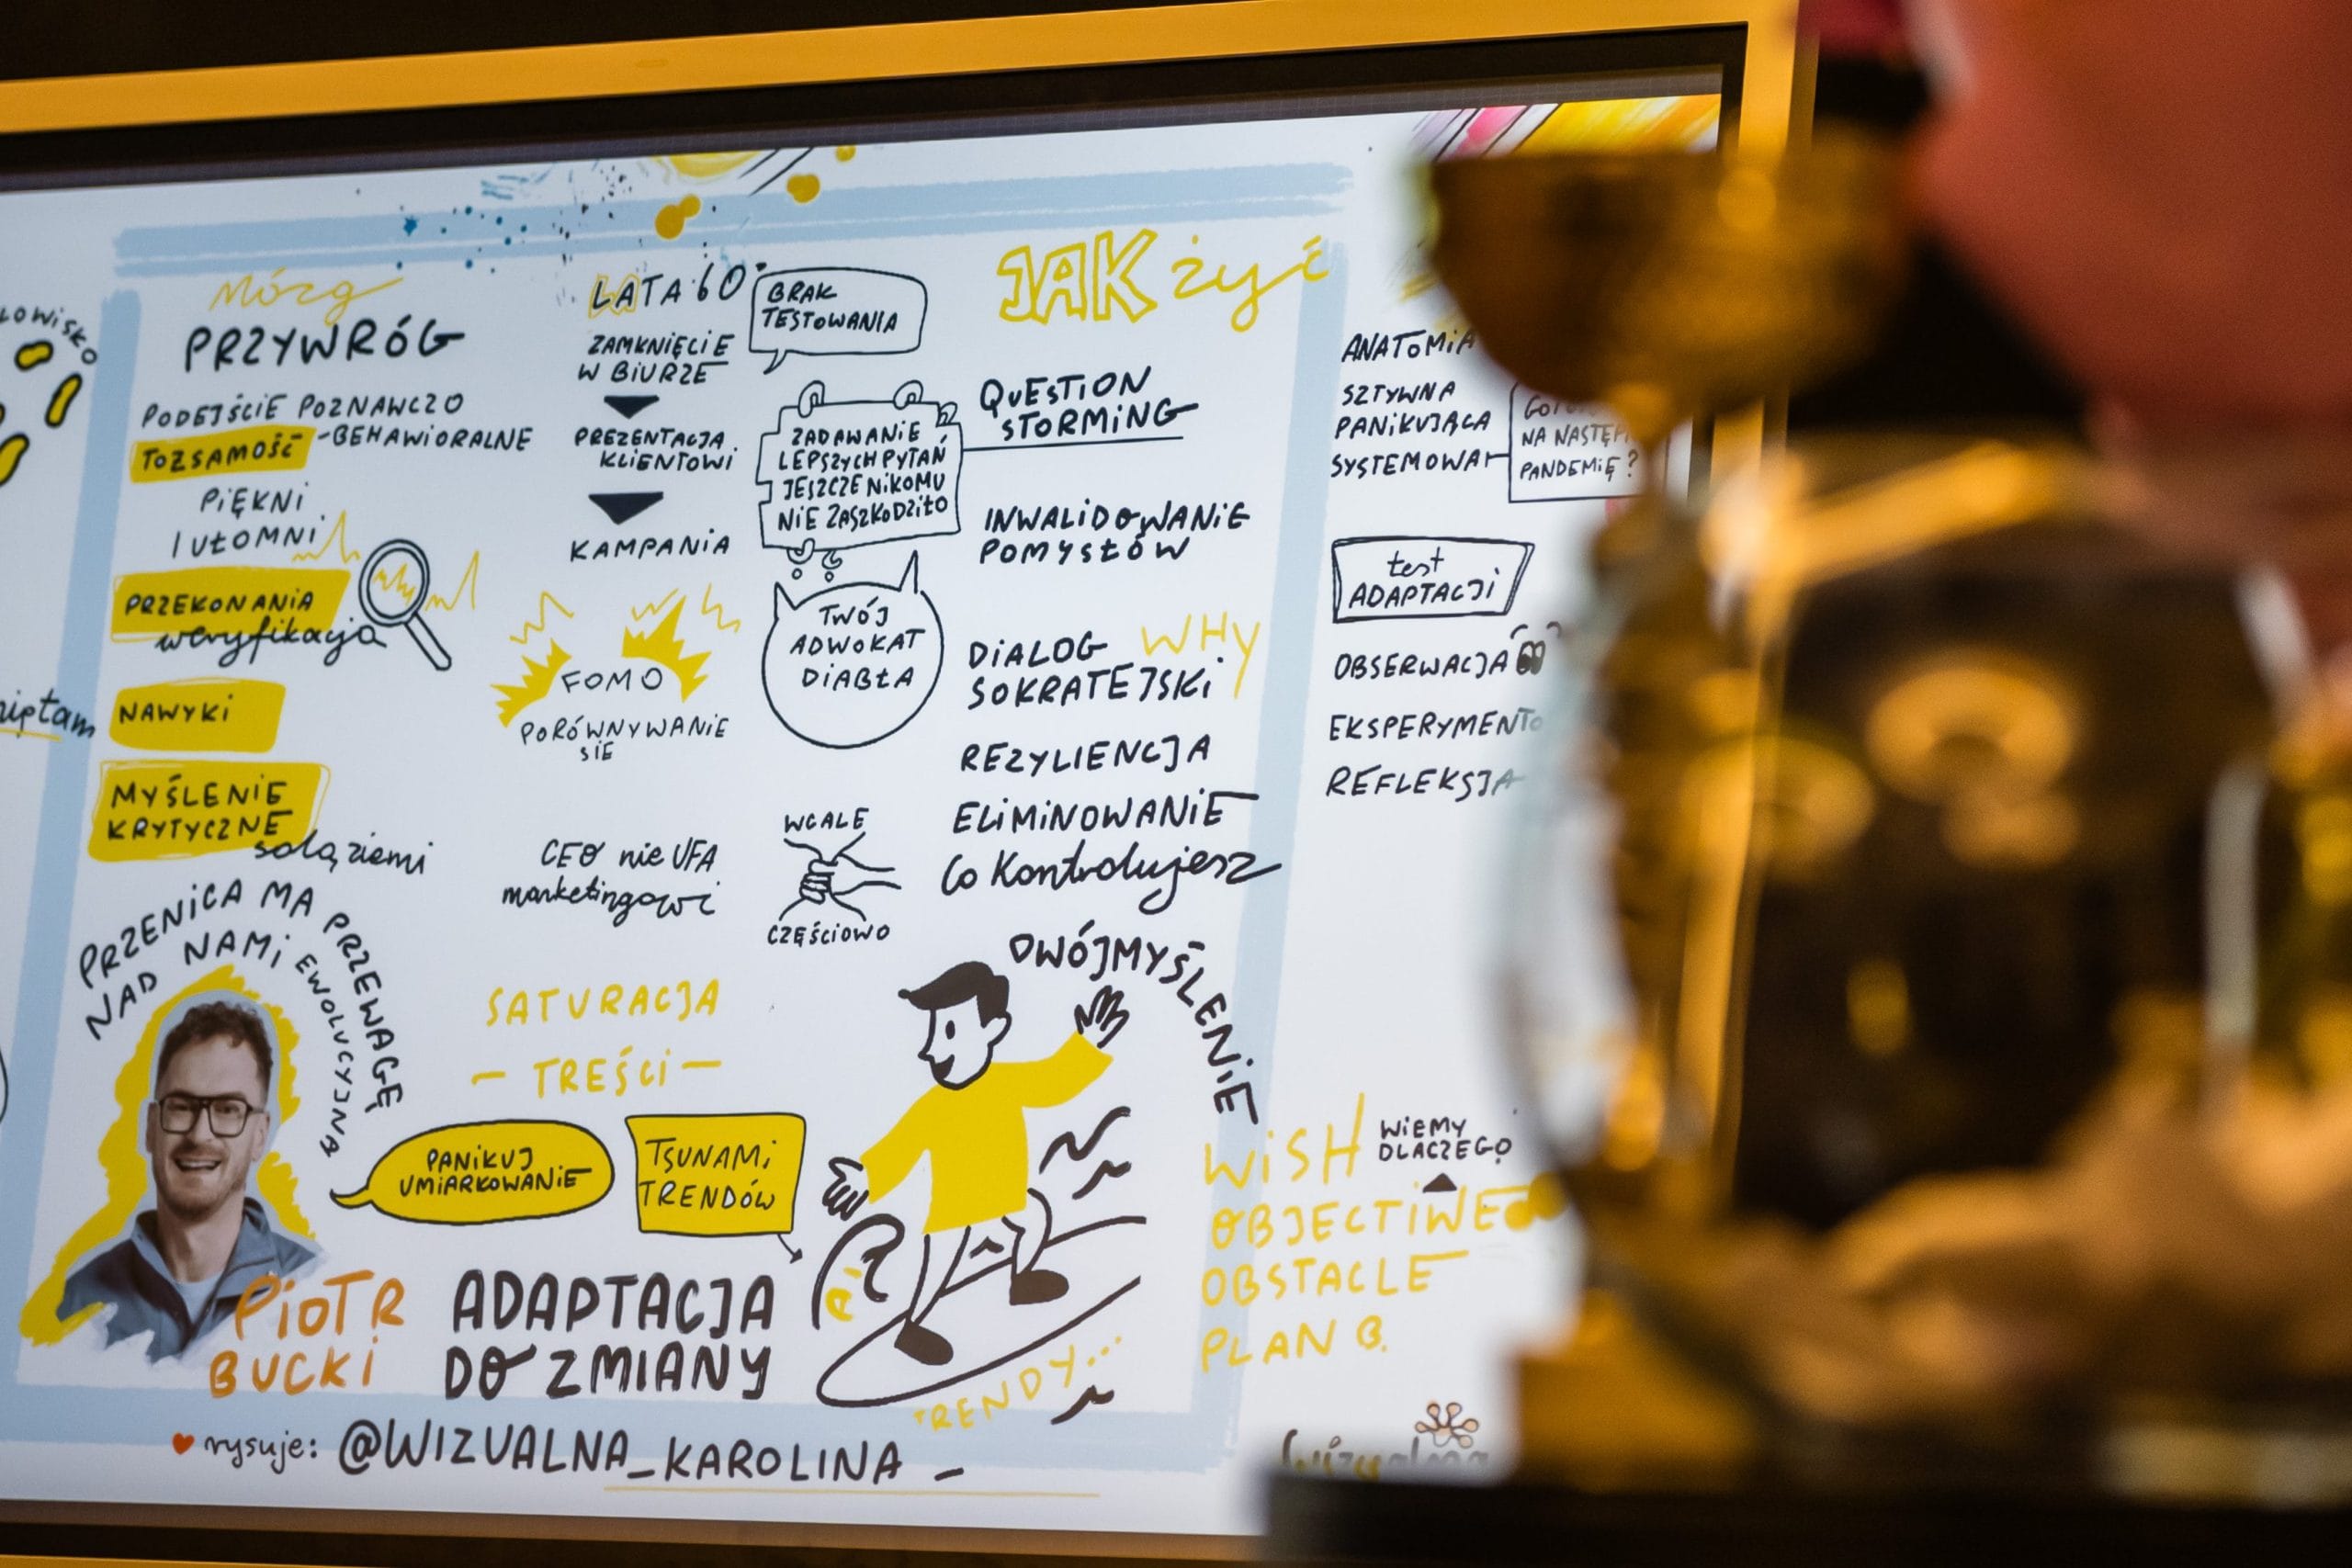 Mózg
PRZYWRÓG
PODEJŚCIE POZNAWCZO
-BEHAWIORALNE
TOŻSAMOŚĆ
PIĘKNI
I UŁOMNI
PRZEKONANIA
weryfikacja
NAWYKI
MYŚLENIE
KRYTYCZNE
solą ziemi
PRZENICA MA PRZEWAGĘ
NAD NAMI EWOLUCYJNĄ
PIOTR
BUCKI
PANIKUJ
UMIARKOWANIE
LATA 60'
ZAMKNIĘCIE
W BIURZE
PREZENTACJA
KLIENTOWI
KAMPANIA
BRAK
TESTOWANIA
ZADAWANIE
LEPSZYCH PYTAŃ
JESZCZE NIKOMU
NIE ZASZKODZIŁO
TWÓJ
ADWOKAT
DIABŁA
FOMO
PORÓWNYWANIE
SIĘ
CEO nie UFA
marketingowi
WCALE
CZĘŚCIOWO
SATURACJA
- TREŚCI -
TSUNAMI
TRENDÓW
ADAPTACJA
DO ZMIANY
JAK żyć
QUESTION
STORMING
INWALIDOWANIE
POMYSŁÓW
DIALOG WHY
SOKRATEJSKI
REZYLIENCJA
ELIMINOWANIE
Co Kontrolujesz
DWÓJMYŚLENIE
TRENDY...
ANATOMIA
SZTYWNA
PANIKUJĄCA
SYSTEMOWA
NA
PANDEMIĘ?
test
ADAPTACJI
OBSERWACJA
REFLEKSJA
WISH
WIEMY
DLACZEGO
OBJECTIWE
OBSTACLE
PLAN B.
rysuje: @WIZUALNA_KAROLINA
wizualna